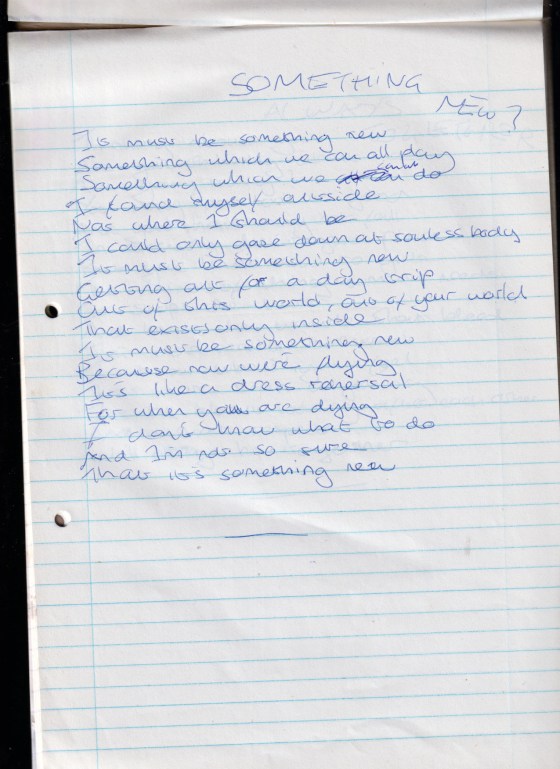 SOMETHING
NEW?
It must be something new
Something which we can all day
Something which we can do
I found myself outside
Not where I should be
I could only gaze down at souless body
It must be something new
Getting out for a day trip
Out of this world, out of your world
That exists only inside
It must be something new
Because now we're flying
It's like a dress rehersal
For when you are dying
I don't know what to do
And I'm not so sure
That it's something new